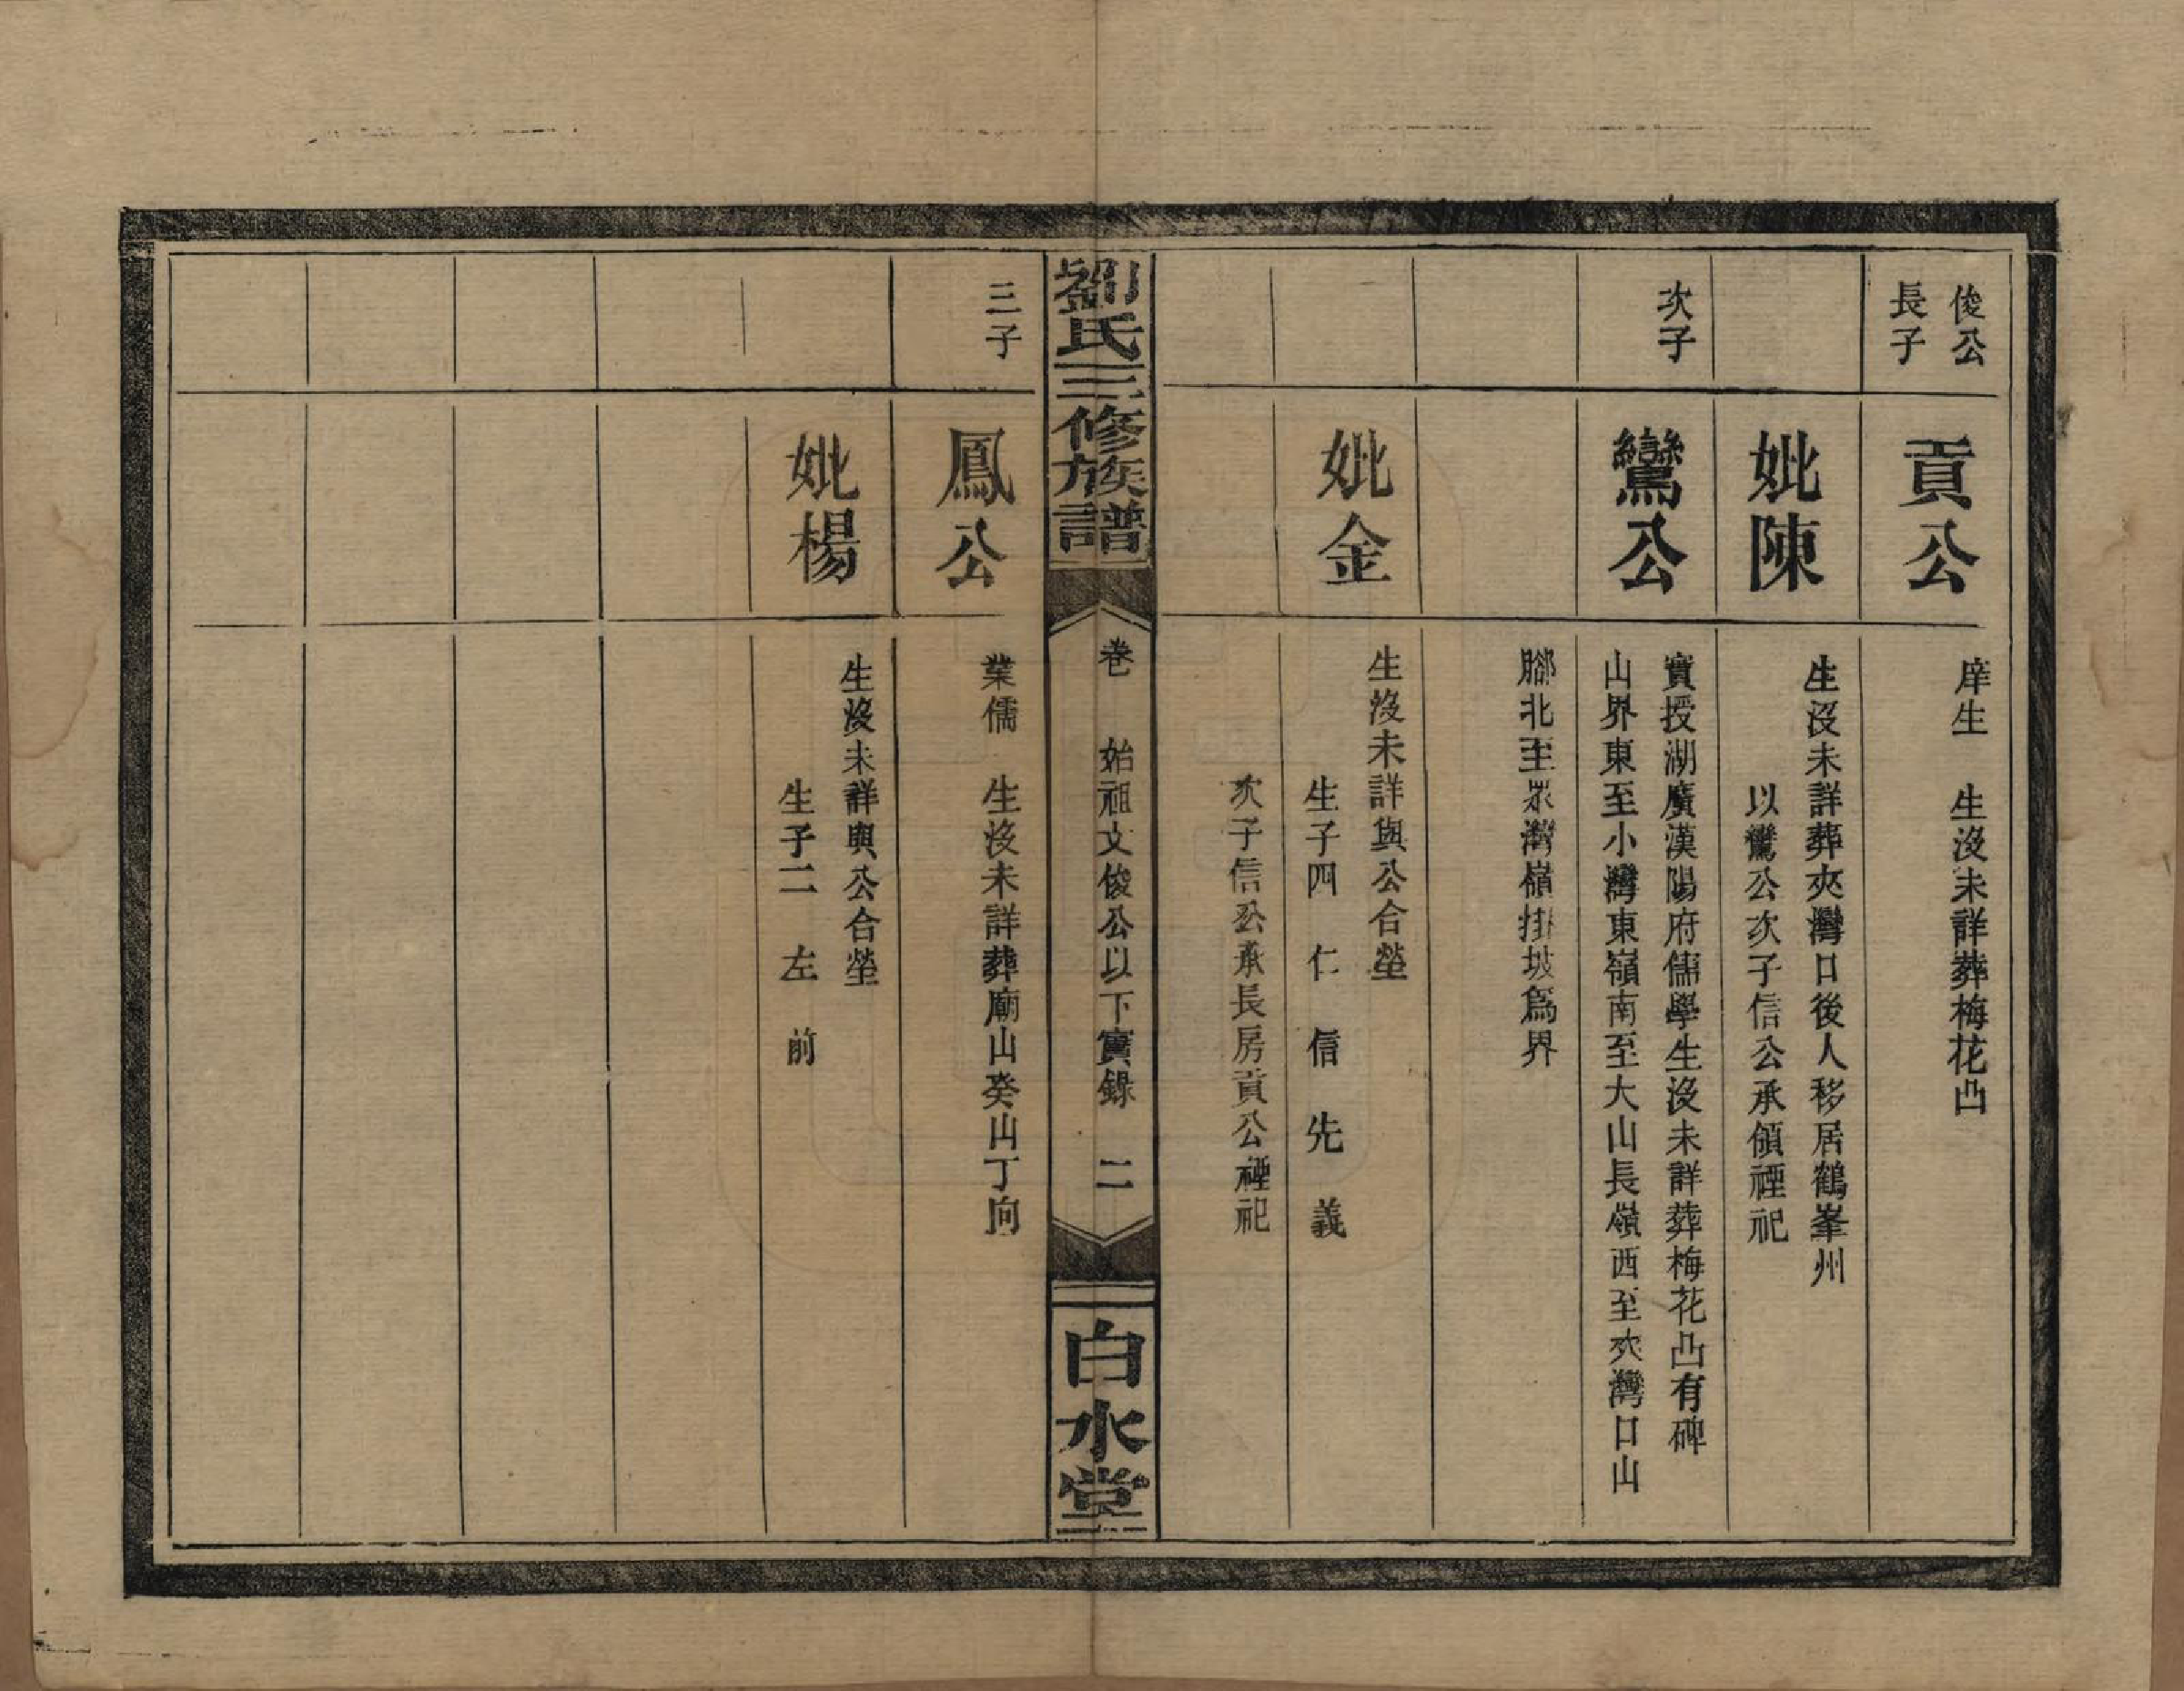 俊公
長子
貢公
庠生　生沒未詳葬梅花凸
妣陳
生沒未詳葬夾灣口後人移居鶴峯州
以鸞公次子信公承領禋祀
次子
鸞公
實授湖廣漢陽府儒學生沒未詳葬梅花凸有碑
山界東至小灣東嶺南至大山長嶺西至夾灣口山
腳北至眾灣嶺掛坡爲界
妣金
生沒未詳與公合塋
生子四　仁　信　先　義
次子信公承長房貢公禋祀
劉氏三修族譜
卷　始祖文俊公以下實錄　二
白水堂
三子
鳳公
業儒　生沒未詳葬廟山癸山丁向
妣楊
生沒未詳與公合塋
生子二　左　前